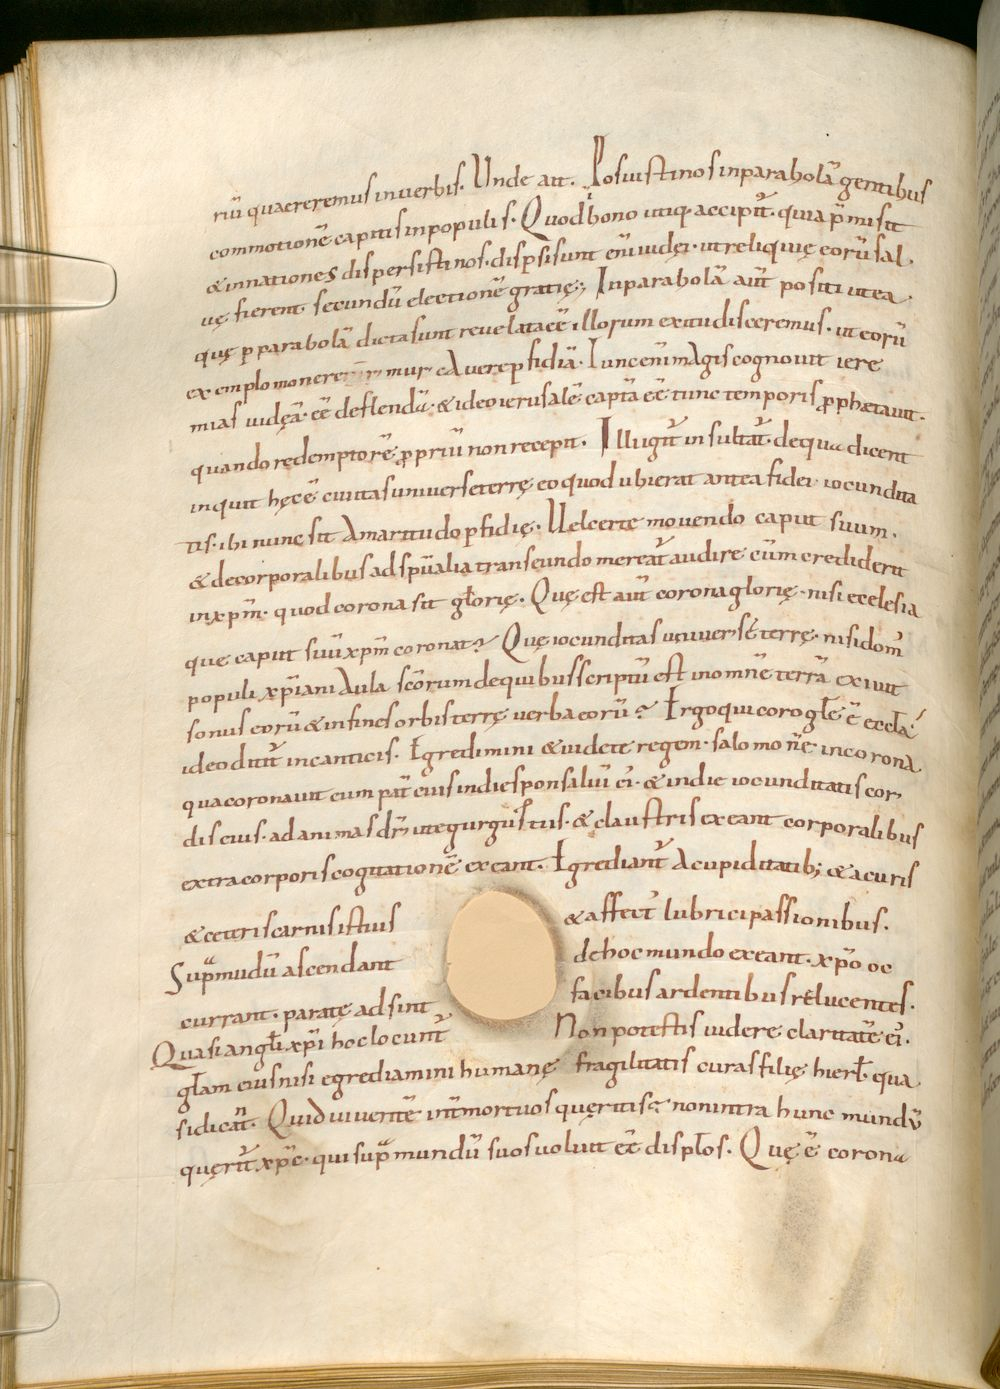 riū quaereremus in uerbis. Unde ait. Posuisti nos in parabolā gentibus
commotionē capitis in populis. Quod bono utiq· accipit̄. quia p̄misit
& in nationes dispersisti nos. dispsi sunt enī iudęi. ut reliquię eorū sal
uę fierent secundū electionē gratię; In parabolā aut̄ positi ut ea
quę p parabolā dicta sunt reuelata eē illorum exitu disceremus. ut eorū
exemplo moneremur cauere pfidiā. Tunc enī magis cognouit iere
mias iudęā. eē deflendā. & ideo ierusalē captā eē tunc temporis pphetauit.
quando redemptorē propriū non recepit. Illi igit̄ insultat̄. de qua dicent
inquit hęc ē ciuitas uniuersę terrę eo quod ubi erat antea fidei iocundita
tis. ibi nunc sit amaritudo pfidię. Uel certe mouendo caput suum.
& de corporalibus ad spūalia transeundo mereat̄ audire cūm crediderit
in xp̄m. quod corona sit glorię. Quę est aut̄ corona glorię. nisi ecclesia
que caput suū xp̄m coronat? Quę iocunditas uniuersę terrę. nisi dom̄
populi xp̄iani aula scōrum de quibus scriptū est in omnē terrā exiuit
sonus eorū & in fines orbis terrę uerba eorū? Ergo qui coro glę̄ ē eccła.
ideo dicit̄ in canticis. Egredimini & uidete regem salomonē in corona
qua coronauit eum mat̄ eius in die sponsaliū ei. & in die iocunditatis cor
dis eius. ad animas dr̄ ut egurgustiis. & claustris exeant corporalibus
extra corporis cogitationē exeant. Egrediant̄ a cupiditatib; & a curis
& ceteris carnis istius & affect̄ lubrici passionibus.
Sup mūdū ascendant de hoc mundo exeant. xp̄o oc
currant. paratę adsint facibus ardentibus relucentes.
Quasi angli xp̄i hoc locunt̄ Non potestis uidere claritatē ei.
głam eius nisi egrediamini humanę fragilitatis curas filię hierł. qua
si dicat̄. Quid uiuentē int̄ mortuos quęritis? non intra hunc mundū
quęrit̄ xp̄c. qui sup mundū suos uoluit eē displos. Quę ē corona